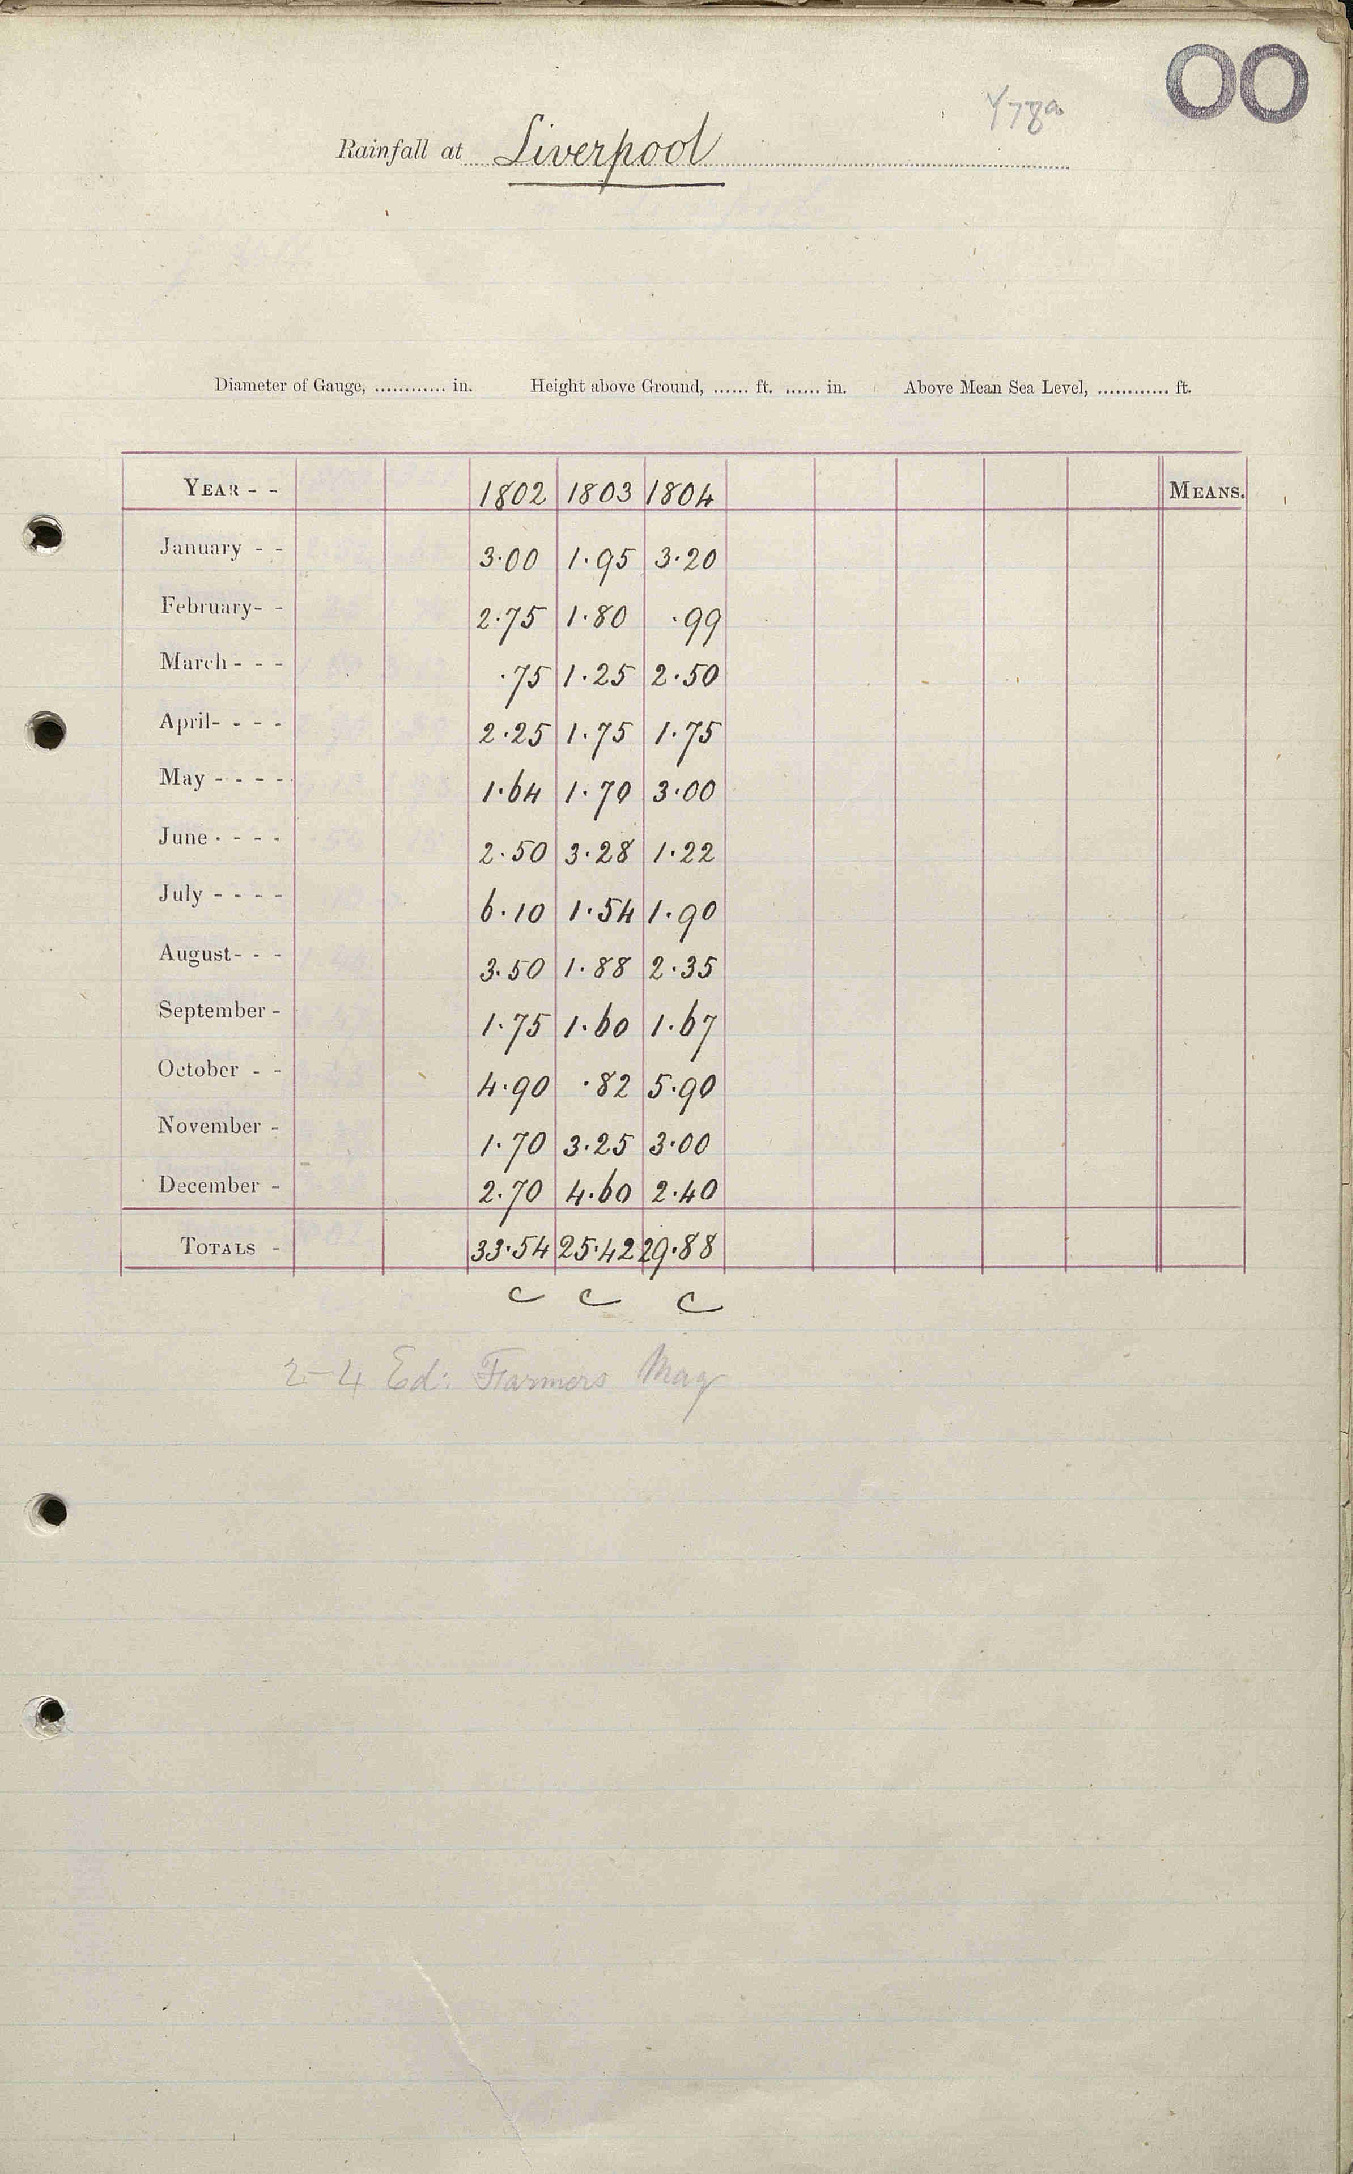 OO
Y78a
Rainfall at Liverpool
Diameter of Gauge, ............ in. Height above Ground, ...... ft. ...... in. Above Mean Sea Level, ............ ft.
YEAR - - 1802 1803 1804 MEANS.
January - - 3.00 1.95 3.20
February - - 2.75 1.80 .99
March - - - .75 1.25 2.50
April - - - - 2.25 1.75 1.75
May - - - - 1.64 1.70 3.00
June - - - - 2.50 3.28 1.22
July - - - - 6.10 1.54 1.90
August - - - 3.50 1.88 2.35
September - 1.75 1.60 1.67
October - - 4.90 .82 5.90
November - 1.70 3.25 3.00
December - 2.70 4.60 2.40
TOTALS - 33.54 25.42 29.88
C C C
2-4 Ed: Farmers Mag